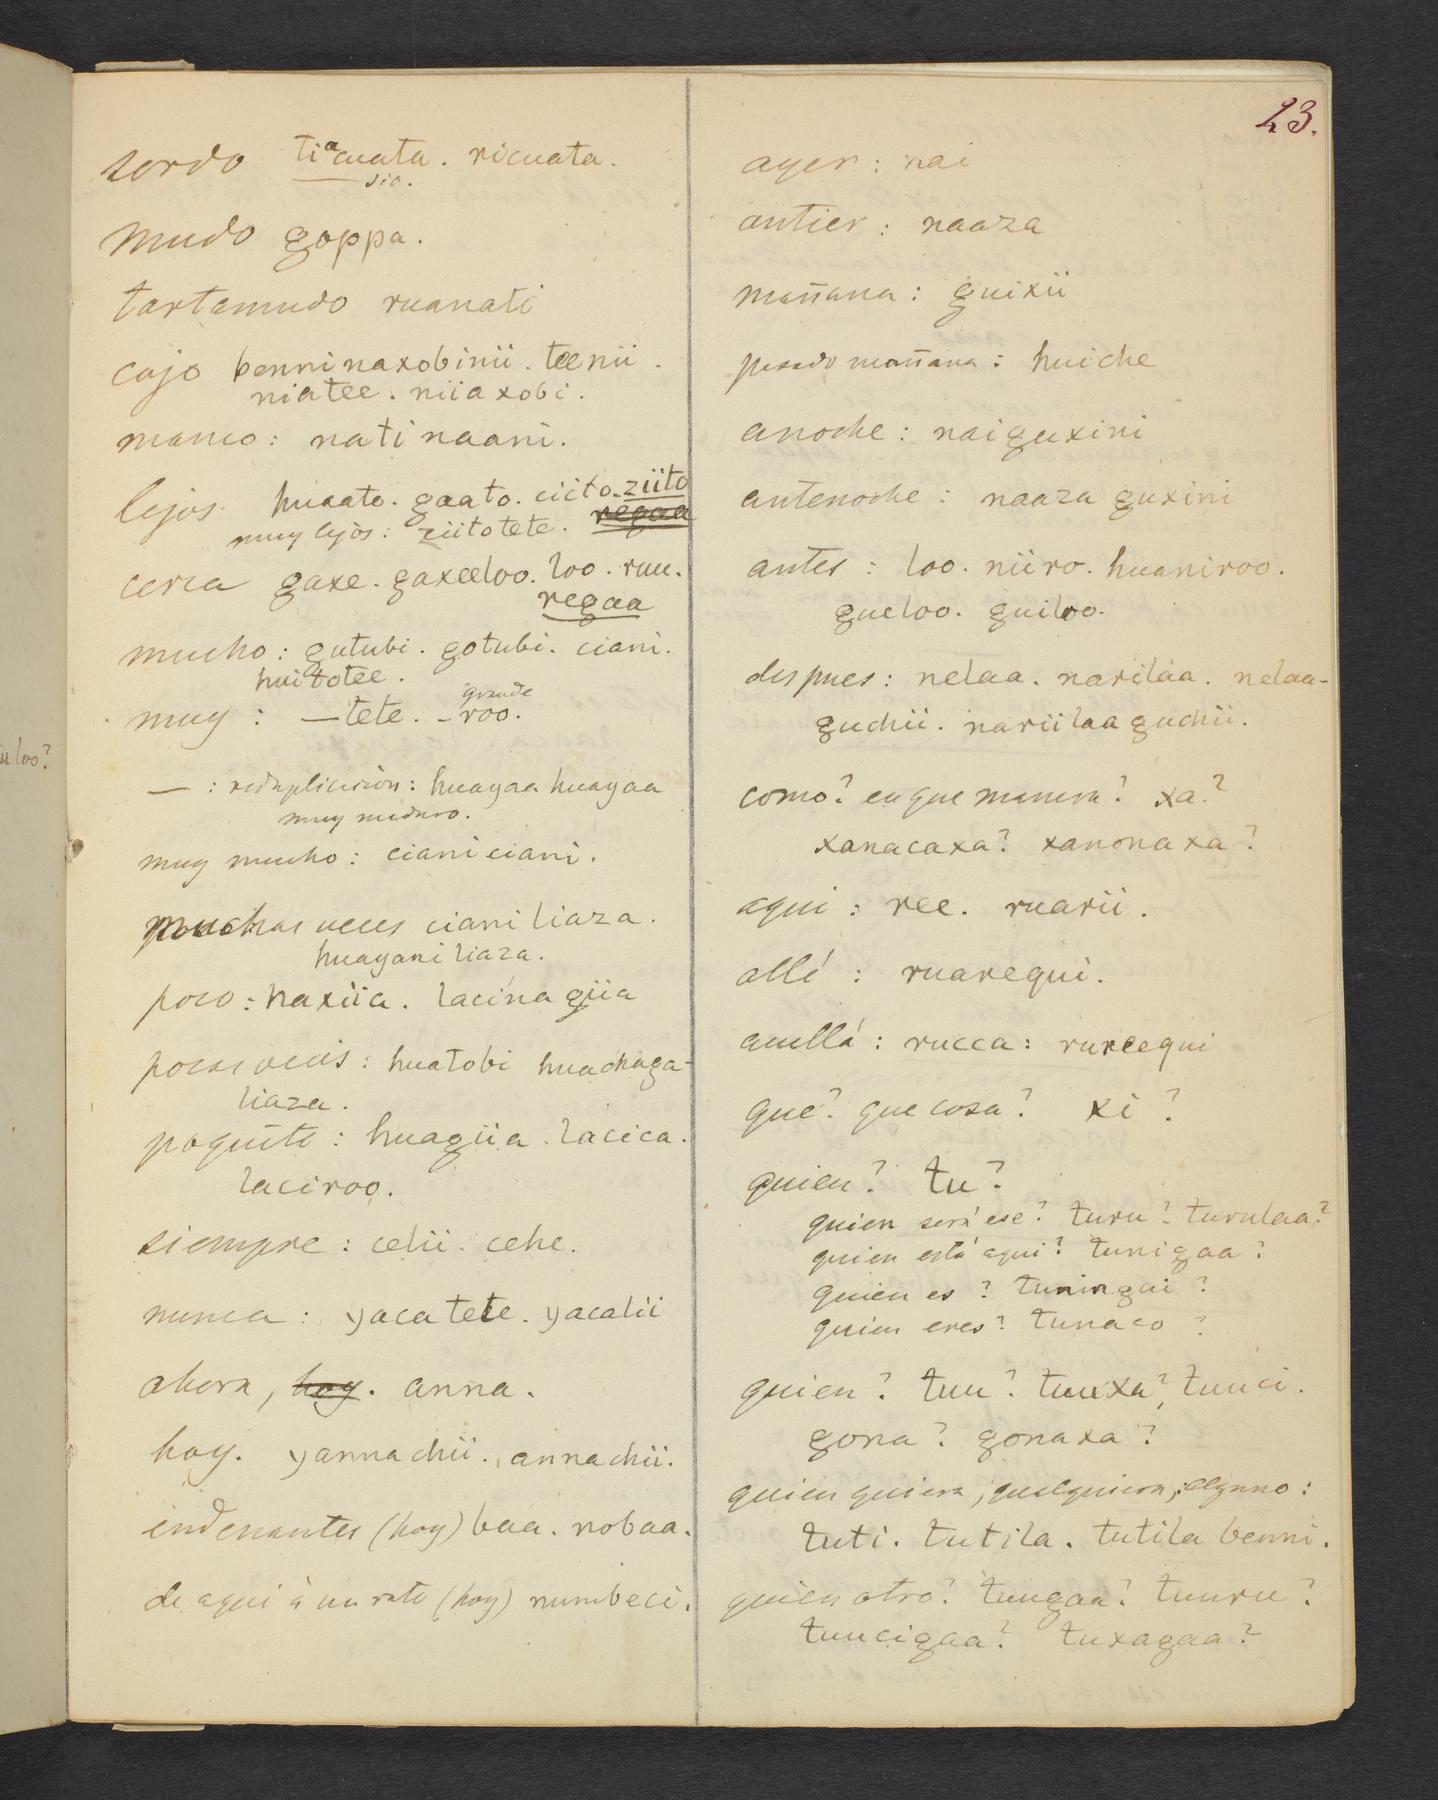 23.
sordo tiacuata. ricuata.
sic.
mudo goppa.
tartamudo ruanati
cojo benninaxobinii. teenii.
niatee. niiaxobi.
manco: nati naani.
lejos. huaato. gaato. ciito. ziito
muy lejos: ziitotete. regaa
cerca gaxe. gaxeeloo. loo. ruu.
regaa
mucho: gutubi. gotubi. ciani.
huitotee.
grande
muy: —tete. –roo.
— : reduplicación: huayaa huayaa
muy maduro.
muy mucho: cianiciani.
muchas veces ciani liaza.
huayani liaza.
poco: naxiia. lacinagiia
pocas veces: huatobi huachaga-
liaza.
poquito: huagiia. lacica.
laciroo.
siempre: celii. cehe.
nunca: yacatete. yacalii
ahora, hoy. anna.
hoy. yannachii. annachii.
endenantes (hoy) baa. nobaa.
de aqui á un rato (hoy) numbeci.
ayer: nai
antier: naaza
mañana: guixii
pasado mañana: huiche
anoche: naiguxini
antenoche: naaza guxini
antes: loo. niiro. huaniroo.
gueloo. guiloo.
despues: nelaa. narilaa. nelaa-
guchii. nariilaaguchii.
como? en que manera? xa?
xanacaxa? xanonaxa?
aqui: ree. ruarii.
allí: ruarequi.
acullá: rucca: rureequi
que? que cosa? xi?
quien? tu?
quien será ese? turu? turulaa?
quien está aqui? tunigaa?
quien es? tuningai?
quien eres? tunaco?
quien? tuu? tuuxa? tuuci.
gona? gonaxa?
quien quiera; qualquiera; alguno:
tuti. tutila. tutila benni.
quien otro? tuugaa? tuuru?
tuucigaa? tuxagaa?